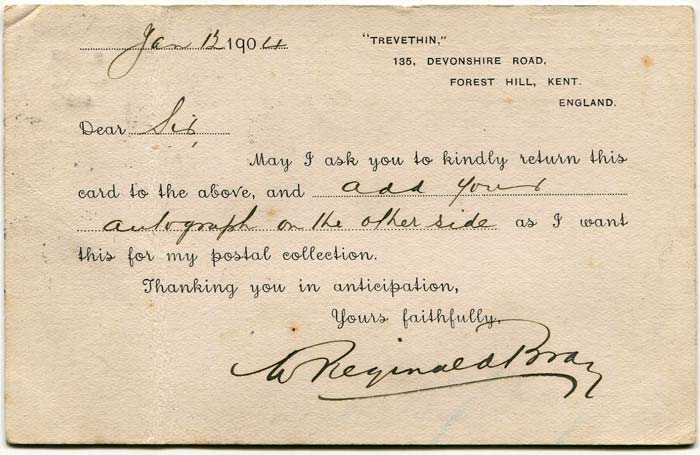 Jan 12 1904
"TREVETHIN,"
135, DEVONSHIRE ROAD,
FOREST HILL, KENT.
ENGLAND.
Dear Sir,
May I ask you to kindly return this
card to the above, and add your
autograph on the other side as I want
this for my postal collection.
Thanking you in anticipation,
Yours faithfully,
W Reginald Bray